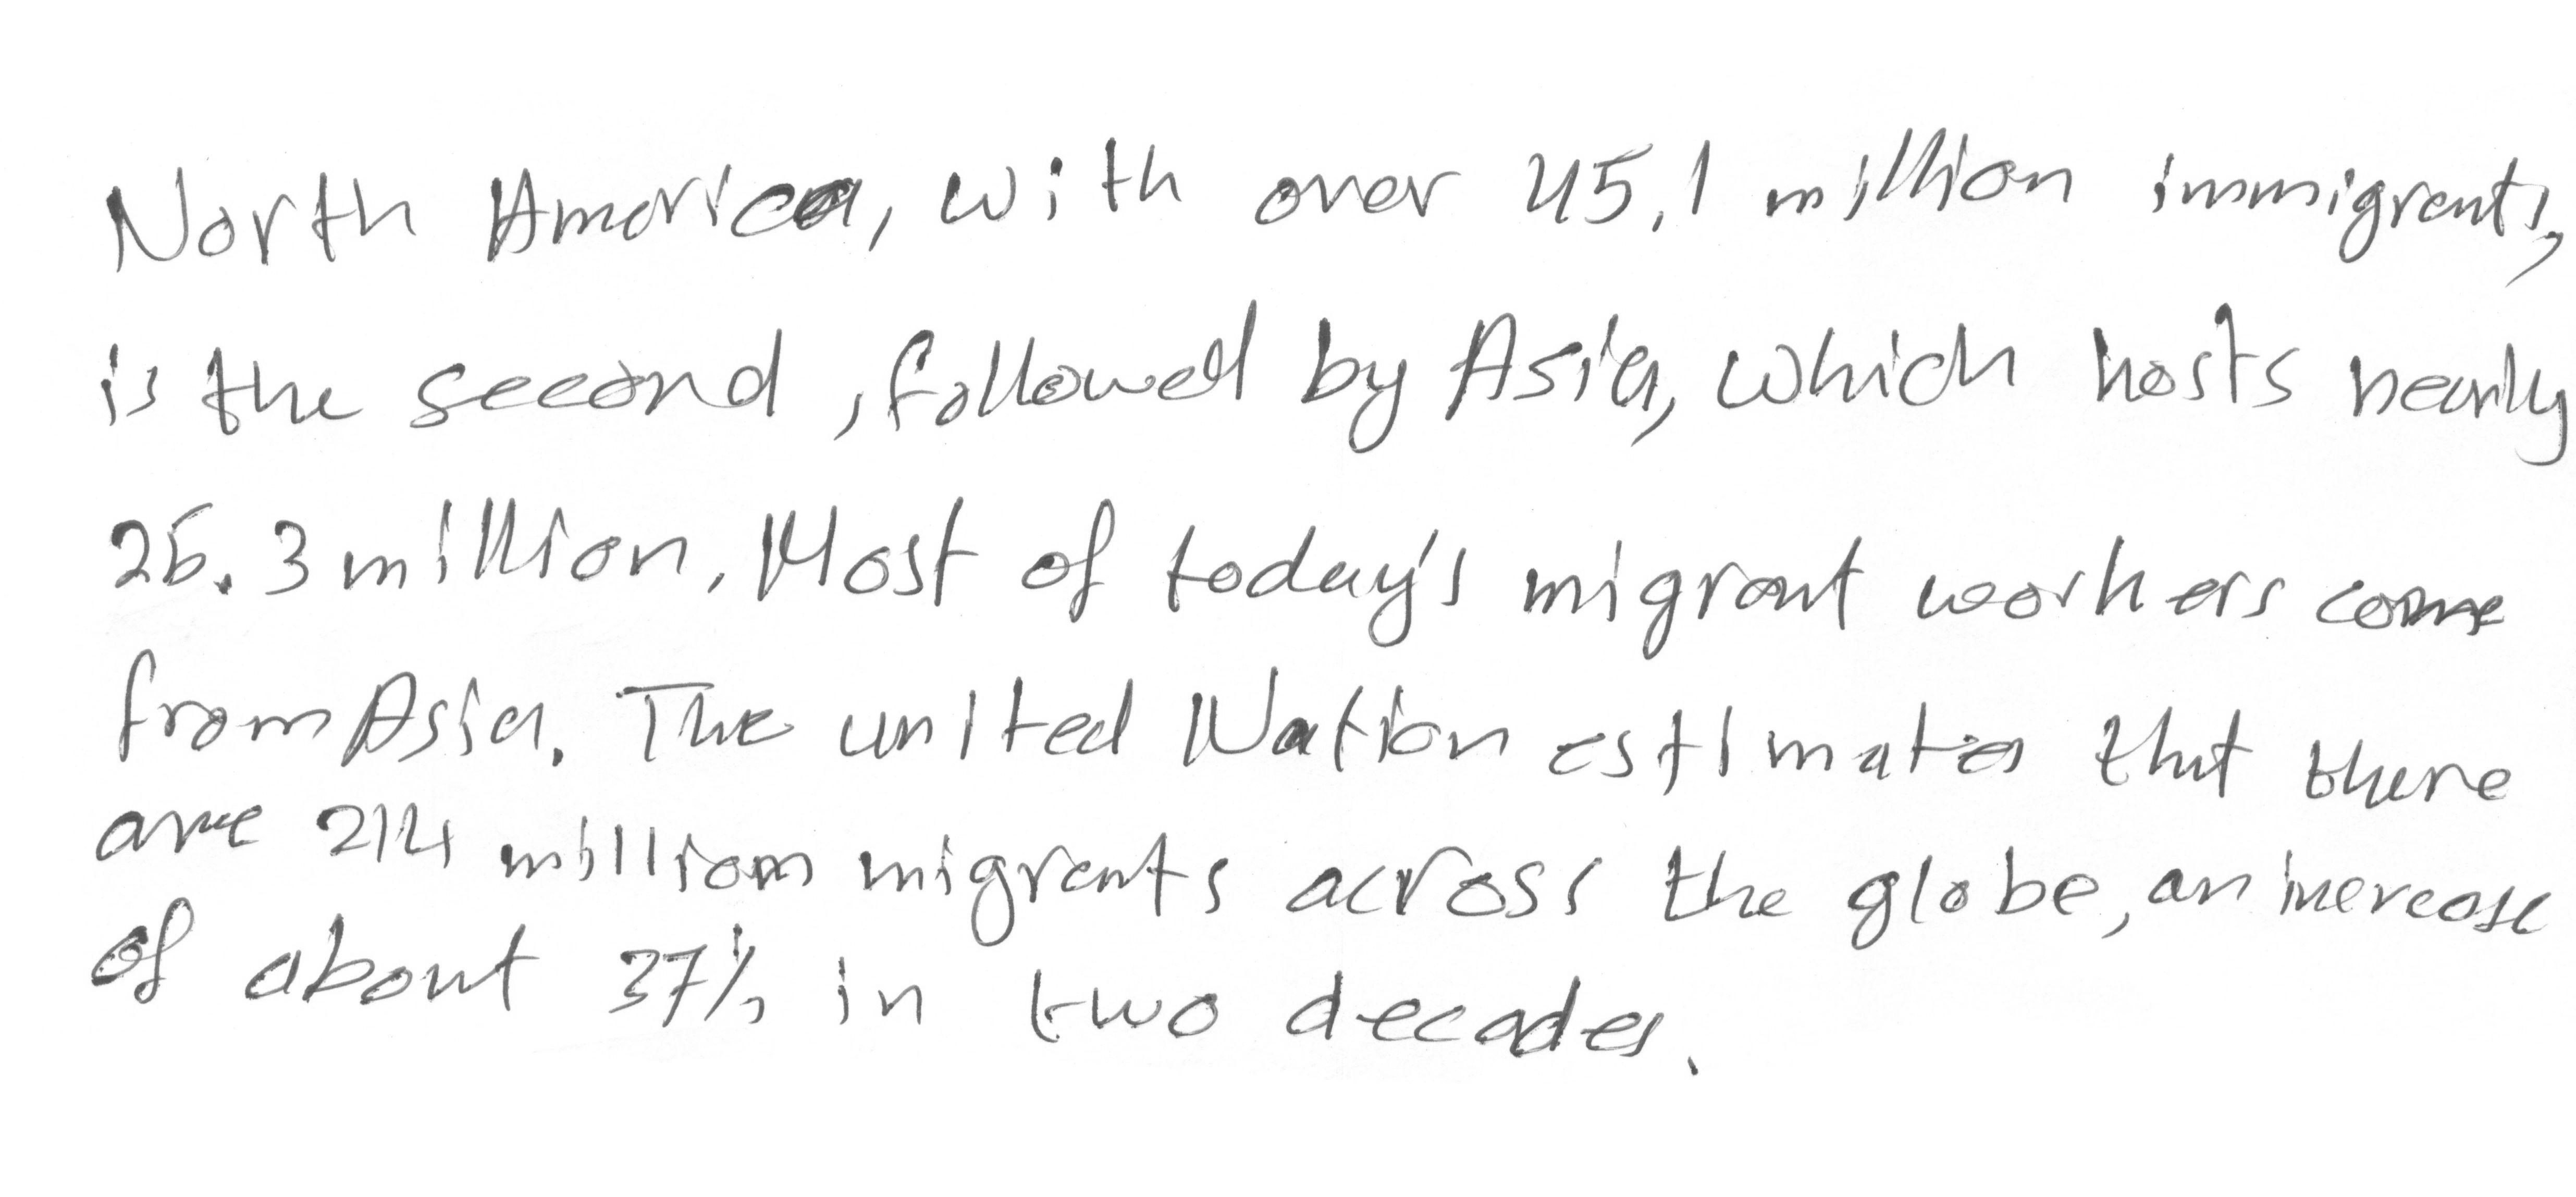 North America, with over 45.1 million immigrants,
is the second, followed by Asia, which hosts nearly
25.3 million. Most of today's migrant workers come
from Asia. The united Nation estimates that there
are 214 million migrants across the globe, an increase
of about 37% in two decades.